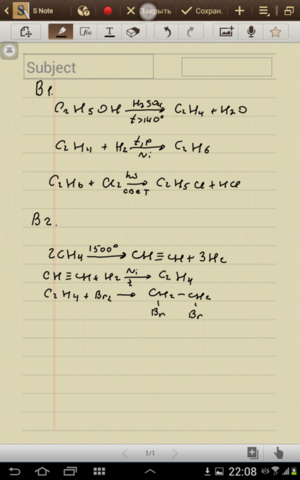 S Note
Закрыть
Сохран.
Subject
В1.
C2H5OH H2SO4 t>140° → C2H4 + H2O
C2H4 + H2 t,p Ni → C2H6
C2H6 + Cl2 hν свет → C2H5Cl + HCl
В2.
2CH4 1500° → CH≡CH + 3H2
CH≡CH + H2 Ni t → C2H4
C2H4 + Br2 → CH2 – CH2
Br Br
1/1
22:08